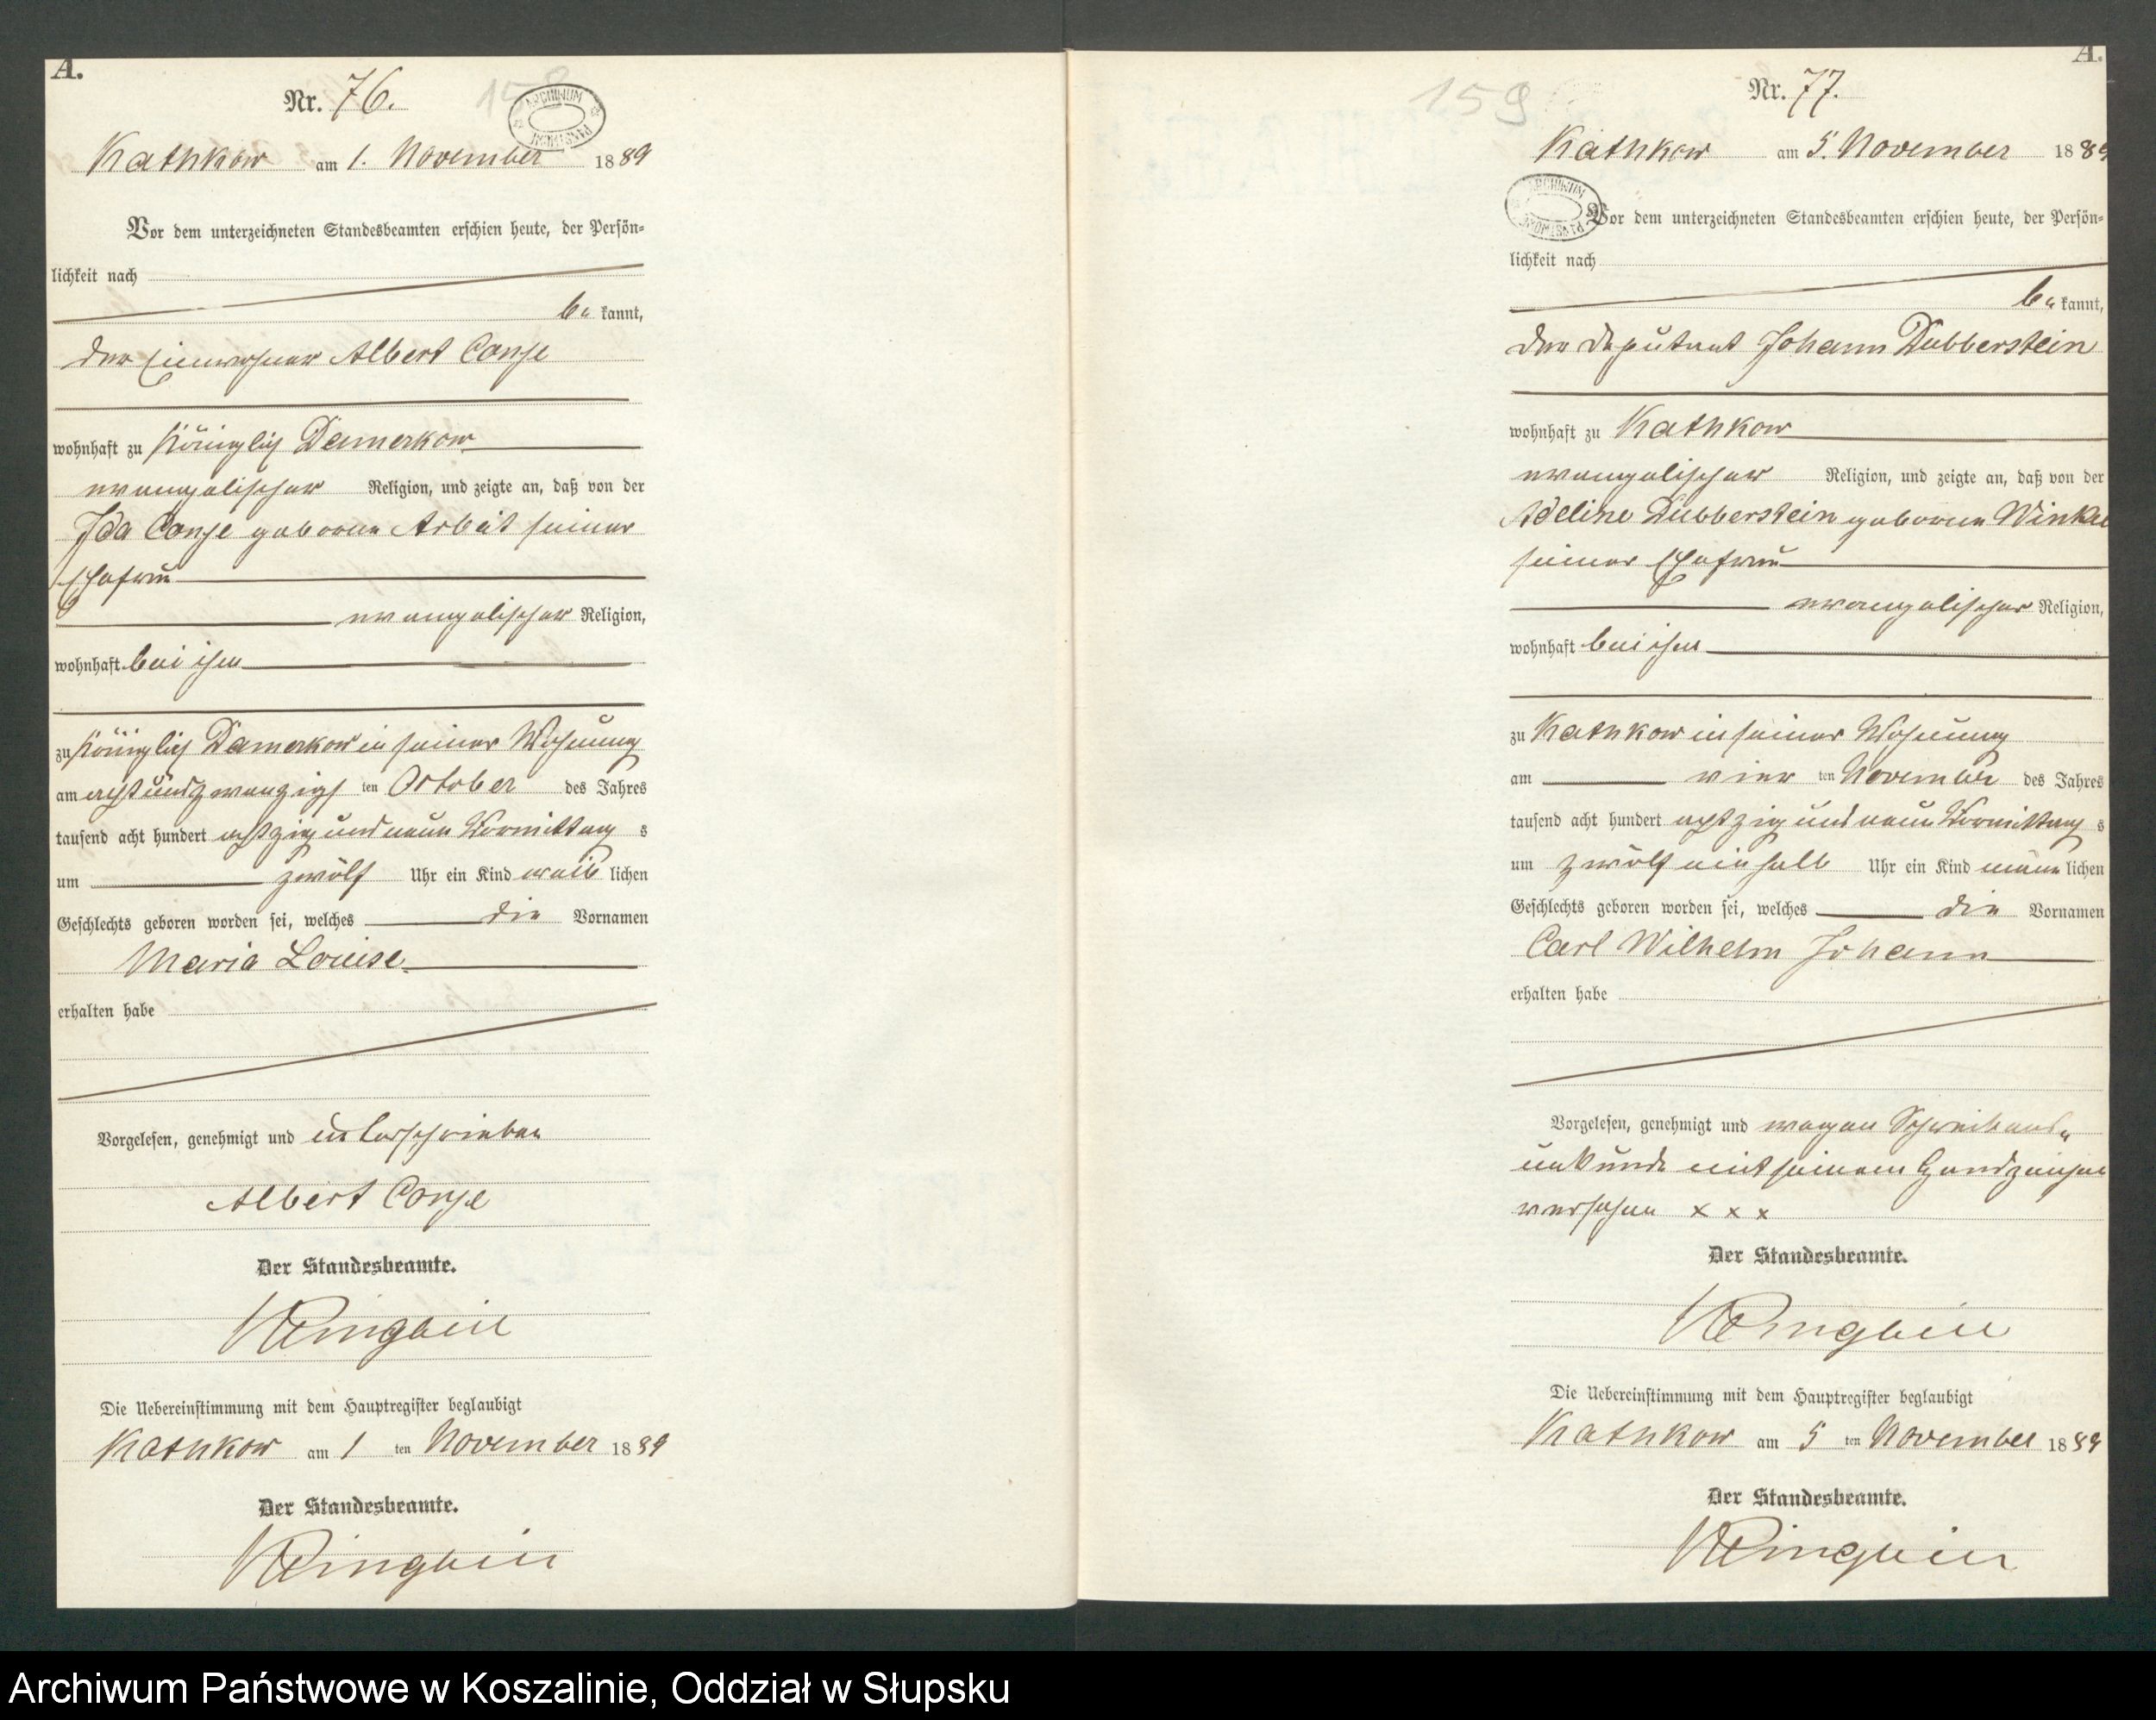 A.
Nr. 76.
158
ARCHIWUM PAŃSTWOWE
Kathkow am 1. November 1889
Vor dem unterzeichneten Standesbeamten erschien heute, der Persön-
lichkeit nach
be kannt,
der Einwohner Albert Conje
wohnhaft zu Königlich Damerkow
evangelischer Religion, und zeigte an, daß von der
Ida Conje geborene Arbeit seiner
Ehefrau
evangelischer Religion,
wohnhaft bei ihm
zu Königlich Damerkow in seiner Wohnung
am achtundzwanzigs ten October des Jahres
tausend acht hundert achtzig und neun Vormittag s
um zwölf Uhr ein Kind weib lichen
Geschlechts geboren worden sei, welches die Vornamen
Maria Louise
erhalten habe
Vorgelesen, genehmigt und unterschrieben
Albert Conje
Der Standesbeamte.
Die Uebereinstimmung mit dem Hauptregister beglaubigt
Kathkow am 1 ten November 1889
Der Standesbeamte.
A.
Nr. 77.
159
ARCHIWUM PAŃSTWOWE
Kathkow am 5. November 1889
Vor dem unterzeichneten Standesbeamten erschien heute, der Persön-
lichkeit nach
be kannt,
der Deputant Johann Dubberstein
wohnhaft zu Kathkow
evangelischer Religion, und zeigte an, daß von der
Adeline Dubberstein geborene Winkel
seiner Ehefrau
evangelischer Religion,
wohnhaft bei ihm
zu Kathkow in seiner Wohnung
am vier ten November des Jahres
tausend acht hundert achtzig und neun Vormittag s
um zwölf einhalb Uhr ein Kind männ lichen
Geschlechts geboren worden sei, welches die Vornamen
Carl Wilhelm Johann
erhalten habe
Vorgelesen, genehmigt und wegen Schreibens
unkunde mit seinem Handzeichen
versehen x x x
Der Standesbeamte.
Die Uebereinstimmung mit dem Hauptregister beglaubigt
Kathkow am 5 ten November 1889
Der Standesbeamte.
Archiwum Państwowe w Koszalinie, Oddział w Słupsku